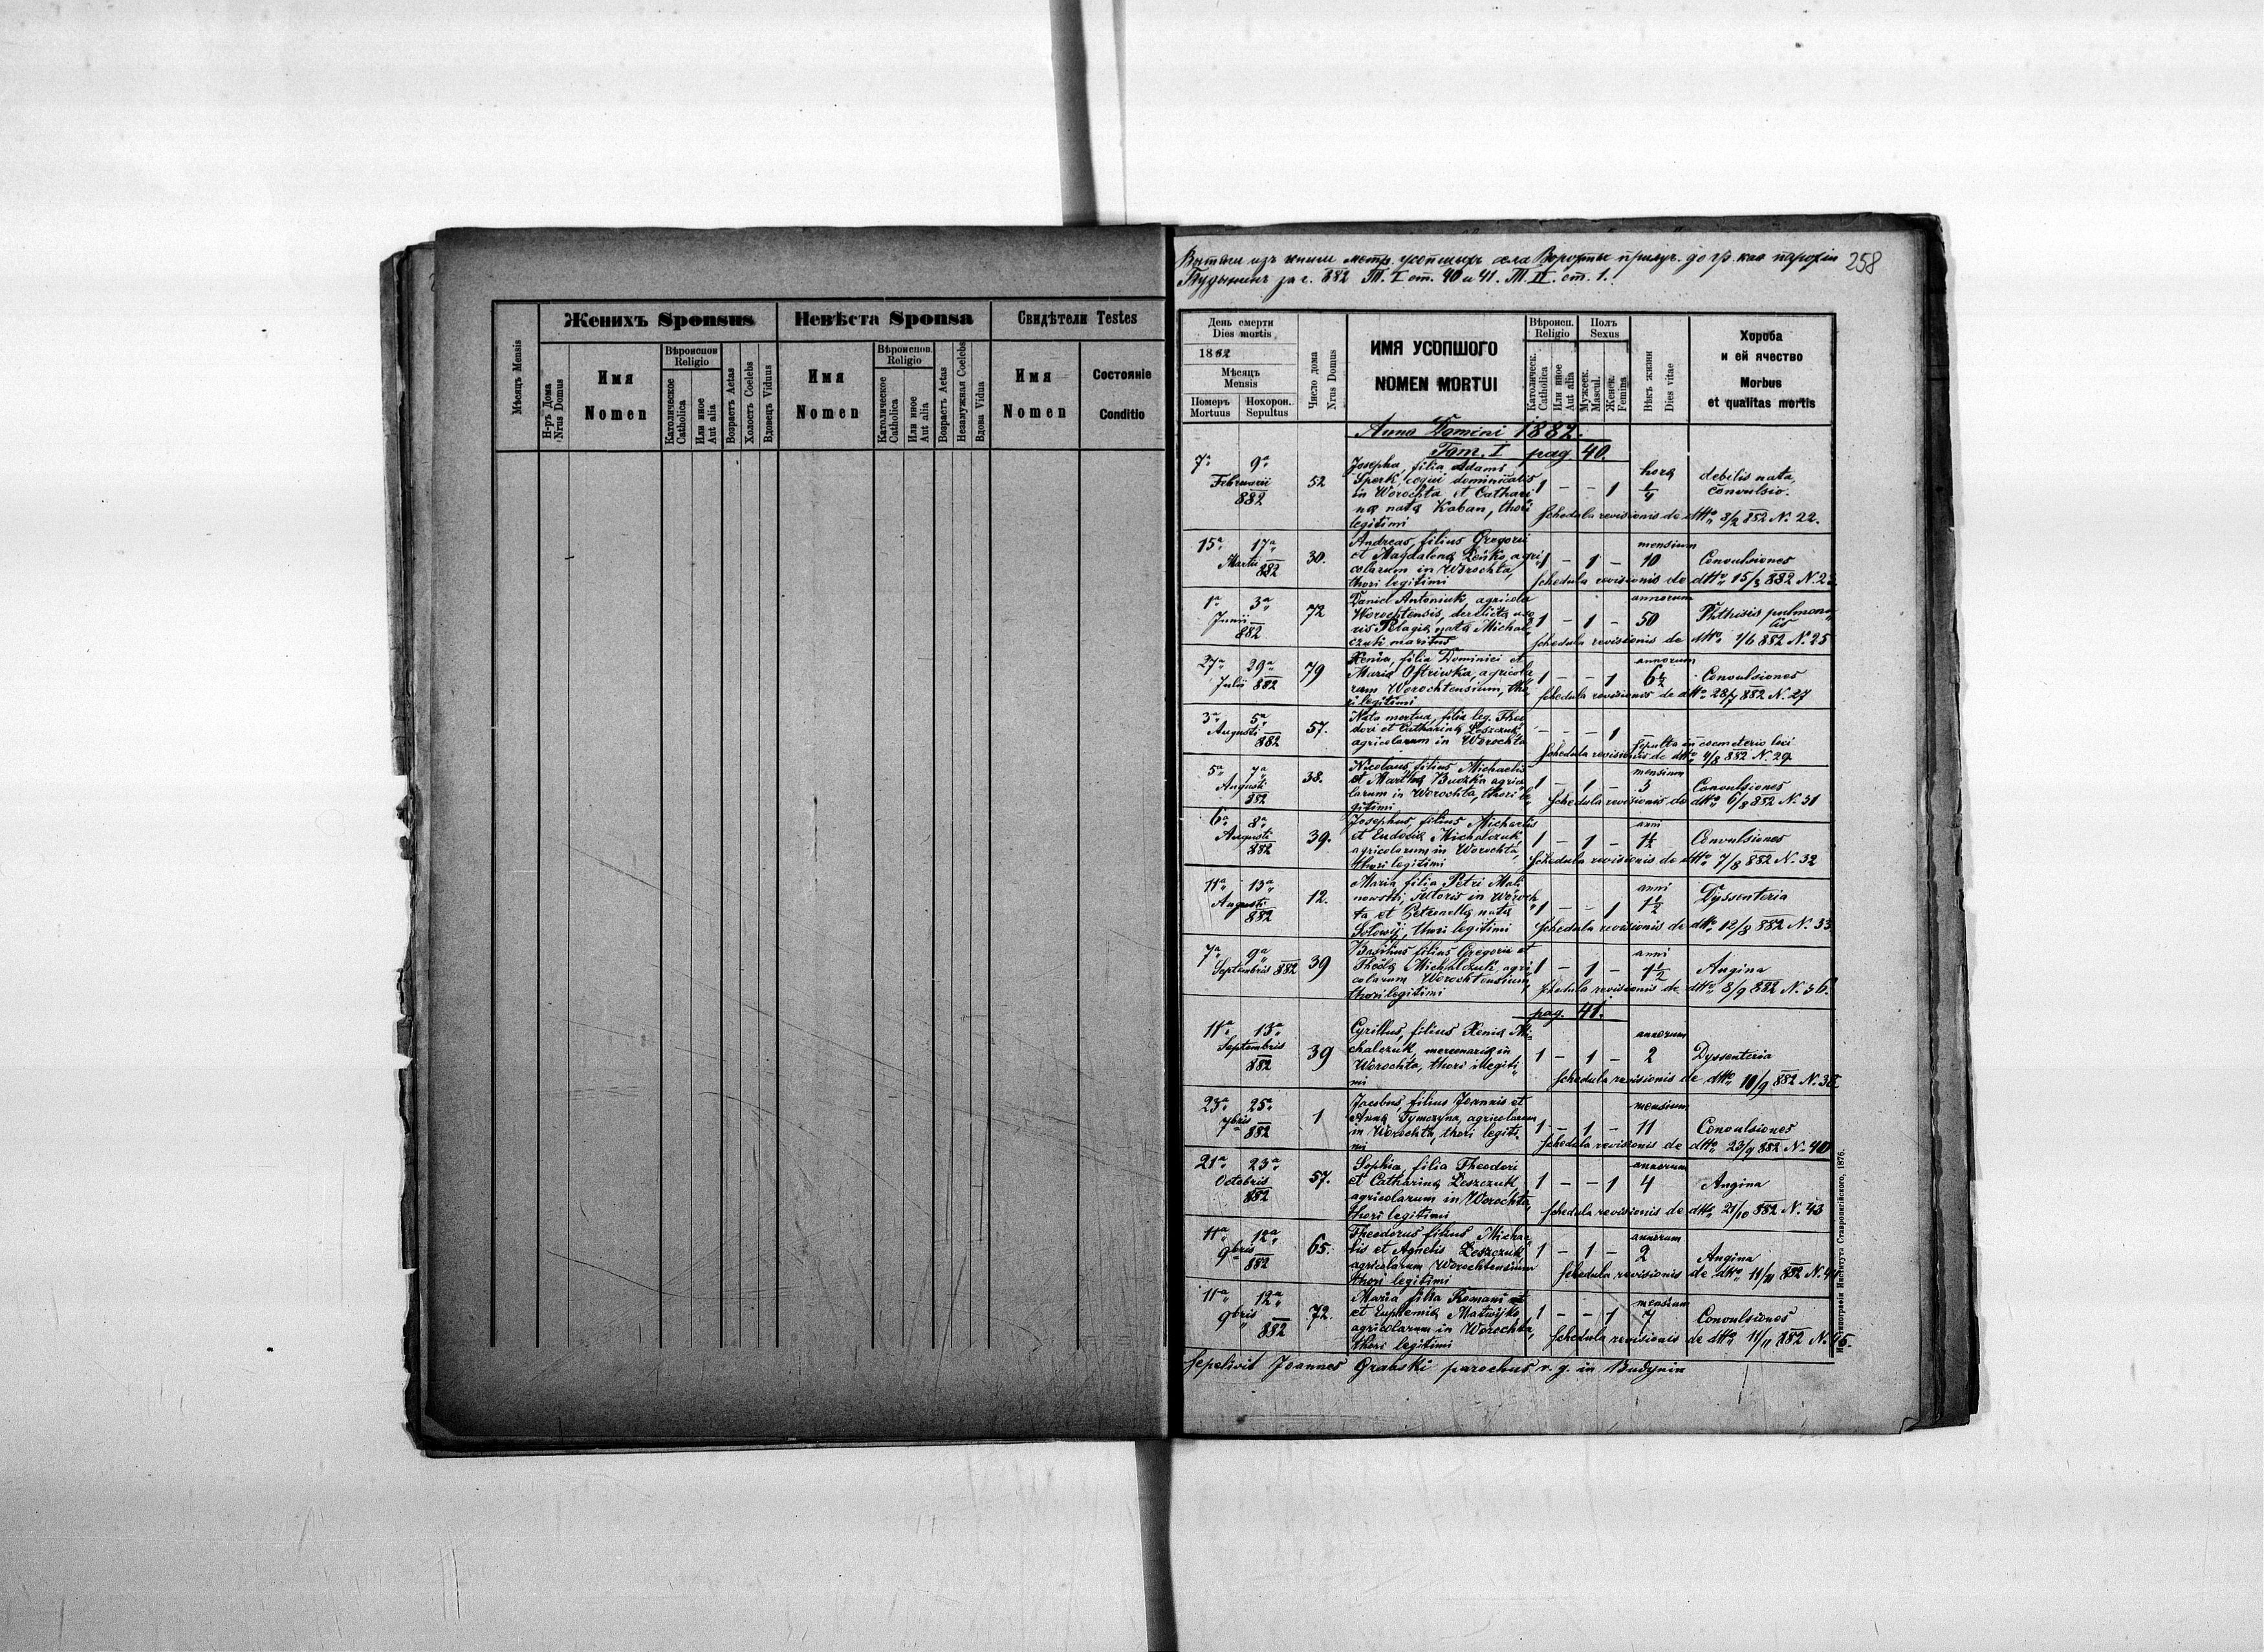 Женихъ Sponsus
Невѣста Sponsa
Свидѣтели Testes
Мѣсяцъ Mensis
Н-ръ Дома
Nrus Domus
Имя
Nomen
Вѣроиспов
Religio
Католическое
Catholica
Или иное
Aut alia
Возрастъ Aetas
Холостъ Coelebs
Вдовецъ Viduus
Имя
Nomen
Вѣроиспов.
Religio
Католическое
Catholica
Или иное
Aut alia
Возрастъ Aetas
Незамужная Coelebs
Вдова Vidua
Имя
Nomen
Состояніе
Conditio
Вытяги изъ книги метр. усопшихъ села Ворохты прилуч. до гр. кат парохіи
Будынинъ за г. 882 Т. I ст. 40 и 41. Т. II. ст. 1.
258
День смерти
Dies mortis
1882
Мѣсяцъ
Mensis
Номеръ
Mortuus
Похорон.
Sepultus
Число дома
Nrus Domus
ИМЯ УСОПШОГО
NOMEN MORTUI
Вѣроисп.
Religio
Католическ.
Catholica
Или иное
Aut alia
Полъ
Sexus
Мужеск.
Mascul.
Женск.
Femina
Вѣкъ жизни
Dies vitae
Хороба
и ей ячество
Morbus
et qualitas mortis
Anno Domini 1882.
Tom. I pag. 40.
7a 9a
Februarii
882
52
Josepha, filia Adami
Sperk, coqui dominicalis
in Worochta et Cathari
na nata Kaban, thori
legitimi
1 - - 1
hora
1/4
debilis nata,
convulsio.
Schedula revisionis de dtto 8/2 882 N. 22.
15a 17a
Martii 882
30.
Andreas, filius Gregorii
et Magdalena Zeńko, agri
colarum in Worochta,
thori legitimi
1 - 1 -
mensium
10
Convulsiones
Schedula revisionis de dtto 15/3 882
1a 3a
Junii
882
72
Daniel Antoniuk, agricola
Worochtensis, derelicta uxo
ris Pelagia nata Michal
czuk maritus
1 - 1 -
annorum
50
Phthisis pulmona
lis
Schedula revisionis de dtto 1/6 882 N. 25
27a 29a
Julii 882
79
Xenia, filia Dominici et
Maria Ostriwka, agricola
rum Worochtensium, tho
ri legitimi
1 - - 1
annorum
6 1/2
Convulsiones
Schedula revisionis de dtto 28/7 882 N. 27
3a 5a
Augusti
882
57.
Nata mortua, filia leg. Theo
dori et Catharina Leszczuk,
agricolarum in Worochta
- - - 1
Sepulta in coemeterio loci
Schedula revisionis de dtto 4/8 882 N. 29
5a 7a
Augusti
882
38.
Nicolaus, filius Michaelis
et Martha Buczka agrico
larum in Worochta, thori le
gitimi
1 - 1 -
mensium
3
Convulsiones
Schedula revisionis de dtto 6/8 882 N. 31
6a 8a
Augusti
882
39.
Josephus filius Michaelis
et Eudosia Michalczuk
agricolarum in Worochta,
thori legitimi
1 - 1 -
anni
1 1/2
Convulsiones
Schedula revisionis de dtto 7/8 882 N. 32
11a 13a
Augusti
882
12.
Maria filia Petri Mali
nowski, sutoris in Woroch
ta et Petronella nata
Sołowij, thori legitimi
1 - - 1
anni
1 1/2
Dyssenteria
Schedula revisionis de dtto 12/8 882 N. 33
7a 9a
Septembris 882
39
Basilius filius Gregorii et
Thecla Michalczuk, agri
colarum Worochtensium,
thori legitimi
1 - 1 -
anni
1 1/2
Angina
Schedula revisionis de dtto 8/9 882 N. 36.
pag. 41.
11a 13a
Septembris
882
39
Cyrillus, filius Xenia Mi
chalczuk, mercenaria in
Worochta, thori illegiti
mi
1 - 1 -
annorum
2
Dyssenteria
Schedula revisionis de dtto 882 N. 38
23a 25a
7bris
882
1
Jacobus, filius Joannis et
Anna Tymczyna, agricolarum
in Worochta, thori legiti
mi
1 - 1 -
mensium
11
Convulsiones
Schedula revisionis de dtto 23/9 882 N. 40
21a 23a
Octobris
882
57.
Sophia, filia Theodori
et Catharina Leszczuk
agricolarum in Worochta,
thori legitimi
1 - - 1
annorum
4
Angina
Schedula revisionis de dtto 21/10 882 N. 43
11a 12a
9bris
882
65.
Theodorus filius Michae
lis et Agnetis Leszczuk
agricolarum Worochtensium
thori legitimi
1 - 1 -
annorum
2
Angina
Schedula revisionis de dtto 11/11 882 N. 44
11a 12a
9bris
882
72.
Maria filia Romani et
et Euphemia Matwijko
agricolarum in Worochta,
thori legitimi
1 - - 1
mensium
7
Convulsiones
Schedula revisionis de dtto 11/11 882 N. 45.
Sepelivit Joannes Grabski parochus r. g. in Budynin
Института Ставропигійского, 1876.